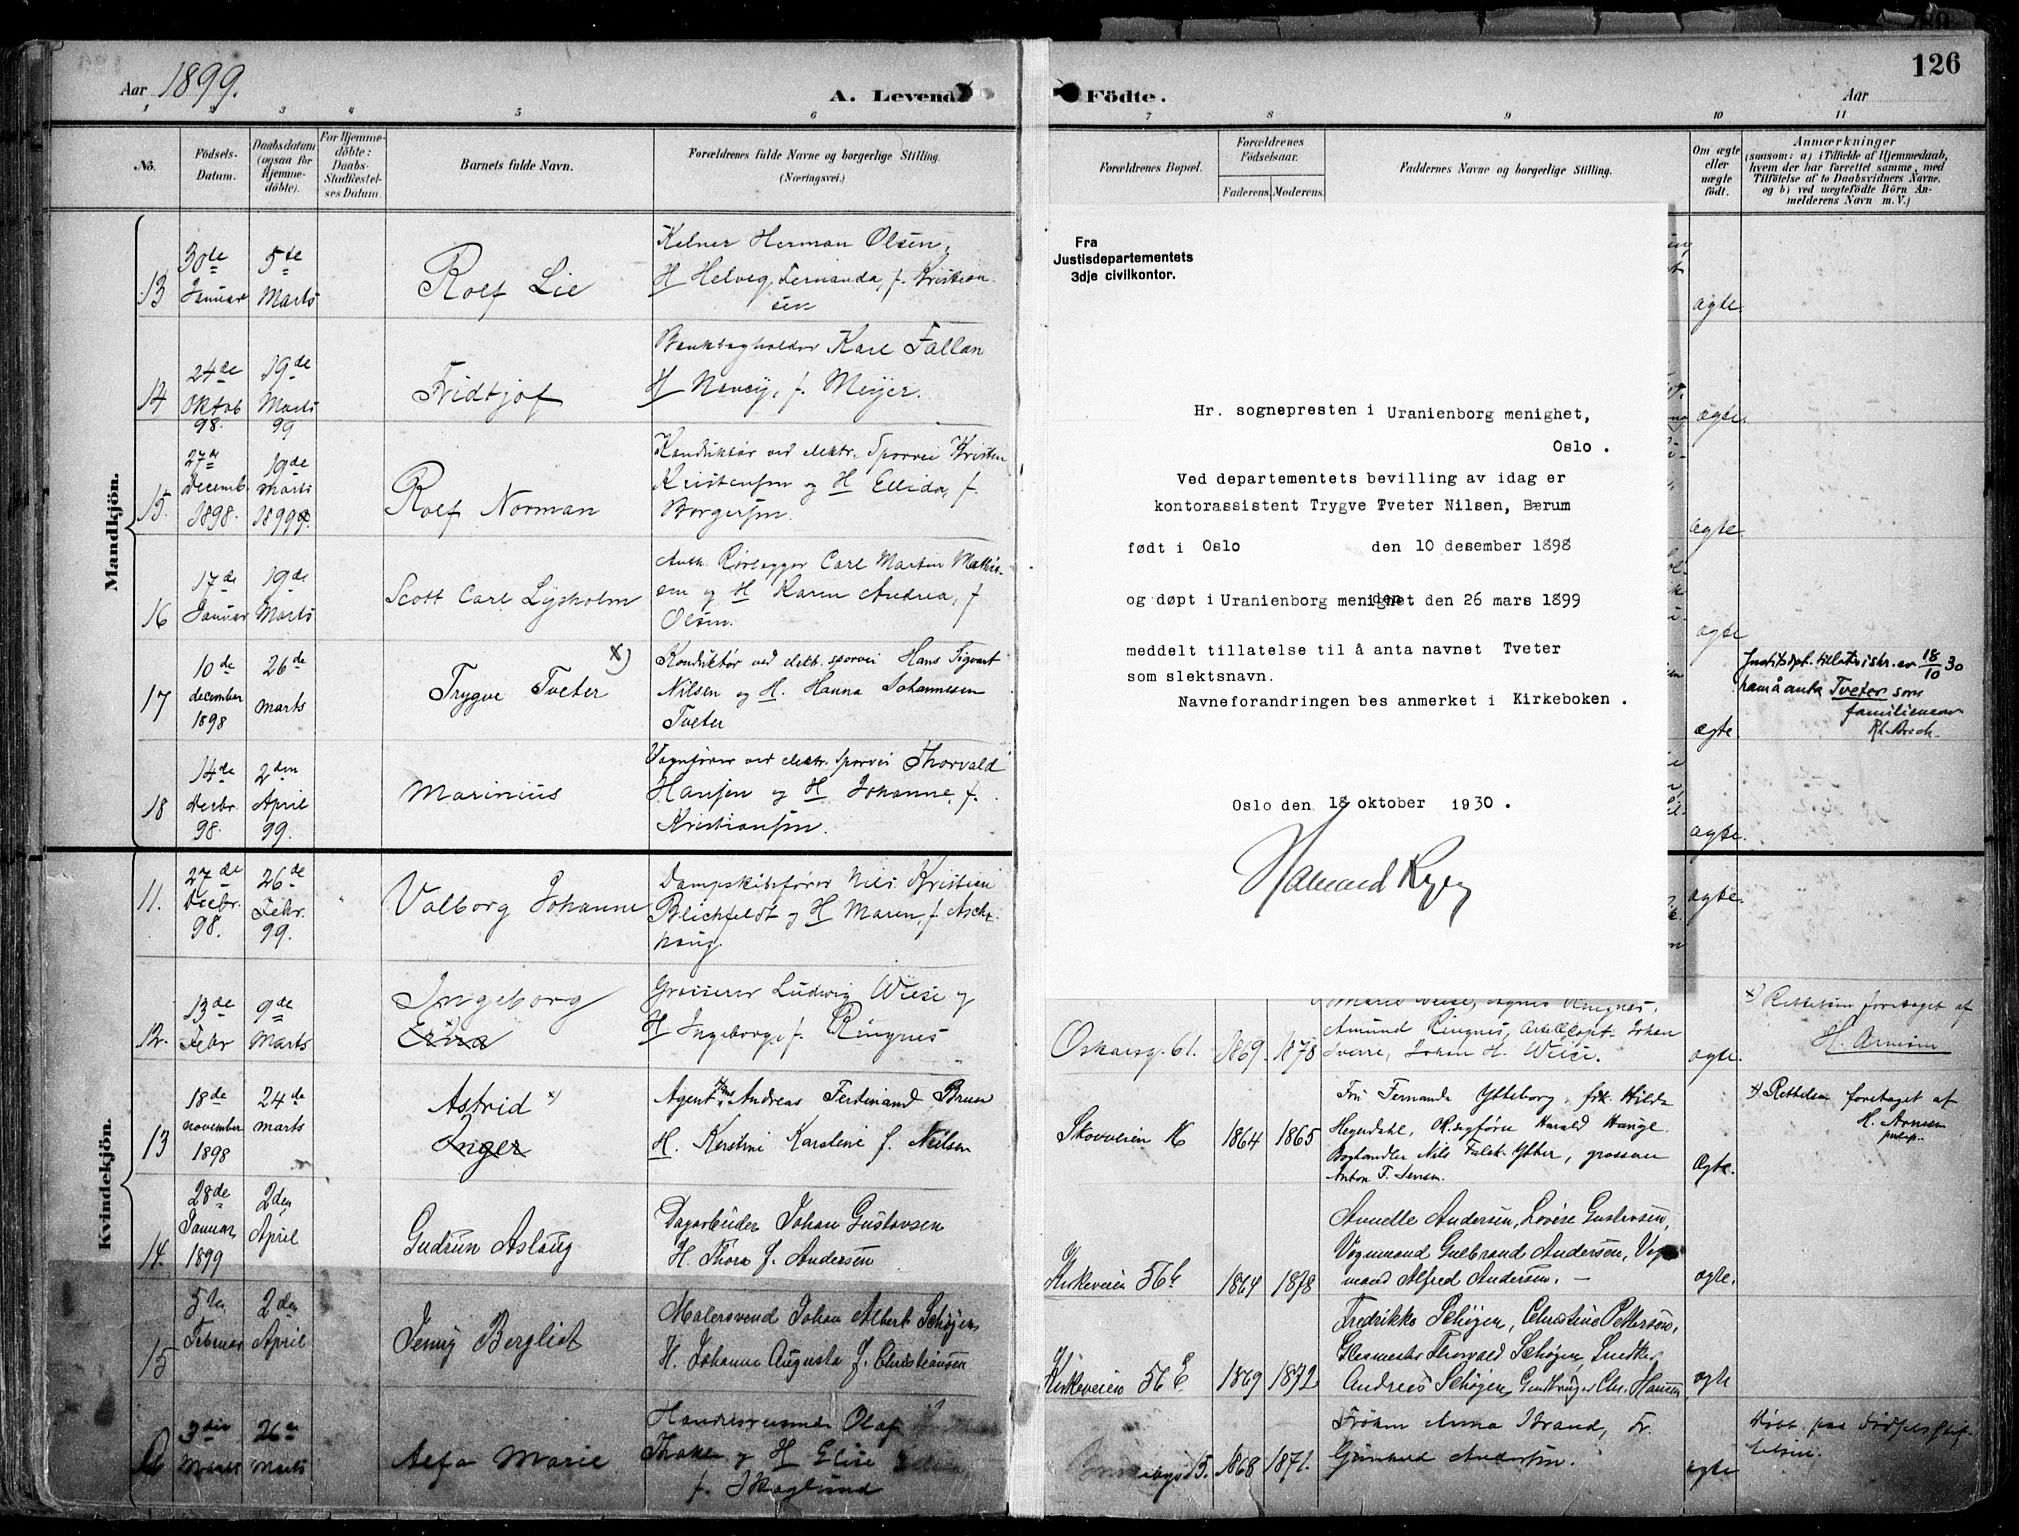 126
Aar 1899.
A. Levende Födte.
Aar
1 2 3 4 5 6 7 8 9 10 11
No.
Födsels-
Datum.
Daabsdatum
(ogsaa for
Hjemme-
döbte).
For Hjemme-
döbte:
Daabs-
Stadfæstel-
ses Datum.
Barnets fulde Navn.
Forældrenes fulde Navne og borgerlige Stilling.
(Næringsvei.)
Forældrenes Bopæl.
Forældrenes
Födselsaar.
Faderens. Moderens.
Faddernes Navne og borgerlige Stilling.
Om ægte
eller
uægte
födt.
Anmærkninger
(saasom: a) i Tilfælde af Hjemmedaab,
hvem der har forrettet samme, med
Tilföielse af to Daabsvidners Navne,
og b) ved uægtefödte Börn An-
melderens Navn m.V.)
Mandkjön.
13
30de
Januar
5te
Marts
Rolf Lie
Kelner Herman Olsen,
H Helvig Fernanda, f. Kristian-
sen
ægte.
14
24de
Oktob
98.
19de
Marts
99
Fridtjof
Bankbogholder Karl Fallan
H Nancy, f. Meyer.
ægte.
15
27de
Decemb.
1898.
19de
Marts
1899.
Rolf Norman
Konduktør ved elektr. Sporvei Kristen
Kristensen og H Ellida, f.
Borgersen.
ægte.
16
17de
Januar
19de
Marts
Scott Carl Lysholm
Rørlægger Carl Martin Mathis-
sen og H Karen Andrea, f
Olsen.
ægte
17
10de
december
1898
26de
marts
Trygve Tveter x)
Konduktør ved elektr. sporvei Hans Sigvart
Nilsen og H. Hanna Johannesen
Tveter
ægte
Justitsdpt. tillatelse skr. av 18/10 30
til å anta Tveter som
familienavn
18
14de
Decbr.
98.
2den
April
99.
Marinius
Vognfører ved elektr. Sporvei Thorvald
Hansen og H Johanne, f.
Kristiansen.
ægte.
Fra
Justisdepartementets
3dje civilkontor.
Hr. sognepresten i Uranienborg menighet,
Oslo.
Ved departementets bevilling av idag er
kontorassistent Trygve Tveter Nilsen, Bærum
født i Oslo den 10 desember 1898
og døpt i Uranienborg menighet den 26 mars 1899
meddelt tillatelse til å anta navnet Tveter
som slektsnavn.
Navneforandringen bes anmerket i Kirkeboken.
Oslo den 18 oktober 1930.
Kvindekjön.
11.
27de
Decbr.
98.
26de
Febr.
99.
Valborg Johanne
Dampskibsfører Nils Kristian
Blichfeldt og H Maren, f. Asche-
houg.
ægte.
12.
13de
Febr
9de
Marts
Ingeborg
Erna
Grosserer Ludwig Wiese og
H Ingeborg, f. Ringnes
Oscarsg. 61.
1869. 1878
Marie Wiese, Agnes Ringnes,
Amund Ringnes, Johan
Sverre, Johan H. Wiese.
ægte.
x) Rettelsen foretaget af
H. Arnesen
13
18de
november
1898
24de
marts
Astrid x)
Inger
Agent Hans Andreas Ferdinand Bruun
H. Kerstine Karoline f. Nielsen
Skovveien
1864 1865
Fru Fernanda Ytteborg, frk. Hilda
Heyerdahl, Harald Hauge,
Boghandler Nils Falck-Ytter, grosserer
Anton F. Jensen.
Ægte.
x) Rettelsen foretaget af
H. Arnesen
14.
28de
Januar,
1899
2den
April
Gudrun Aslaug
Dagarbeider Johan Gustavsen
H. Thora f. Andersen
Kirkeveien 56 b
1864 1878
Annette Andersen, Lovise Gustavsen,
Vognmand Gulbrand Andersen, Vogn-
mand Alfred Andersen. -
ægte.
15
5te
Februar
2den
April
Jenny Bergliot
Malersvend Johan Albert Schøjen
H. Johanne Augusta f. Christiansen
Kirkeveien 56 E.
1869 1872
Fredrikke Schøjen, Christine Pettersen,
Glasmester Thorvald Schøjen, Snedker
Andreas Schøjen, Chr. Hansen
ægte
3die
Marts
26de
Marts
Alfa Marie
Handelsreisende Olaf
og H Elise
f. Skoglund
15.
1868 1871.
Frøken Anna Strand, Fr.
Andersen.
ægte
Døbt paa Fødselsstif-
telsen.